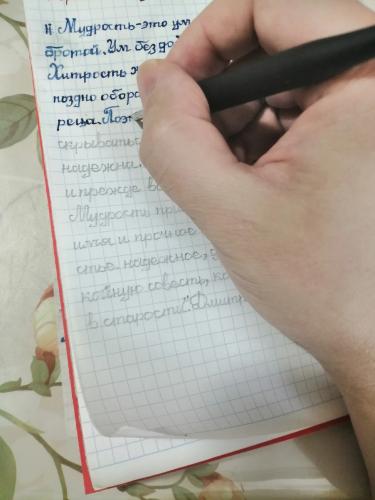 "Мудрость - это ум
бротой. Ум без до
Хитрость
поздно обора
реца. Поэт
скрываться
надежна
и прежде вс
Мудрость при
и прочное
стье надежное,
койную совесть, ко
в старости". Дмитр